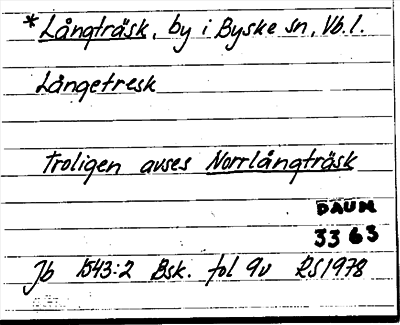 * Långträsk, by i Byske sn, Vb. l.
Långetresk
Troligen avses Norrlångträsk
DAUM
3363
Jb 1543:2 Bsk. fol 9v RS1978